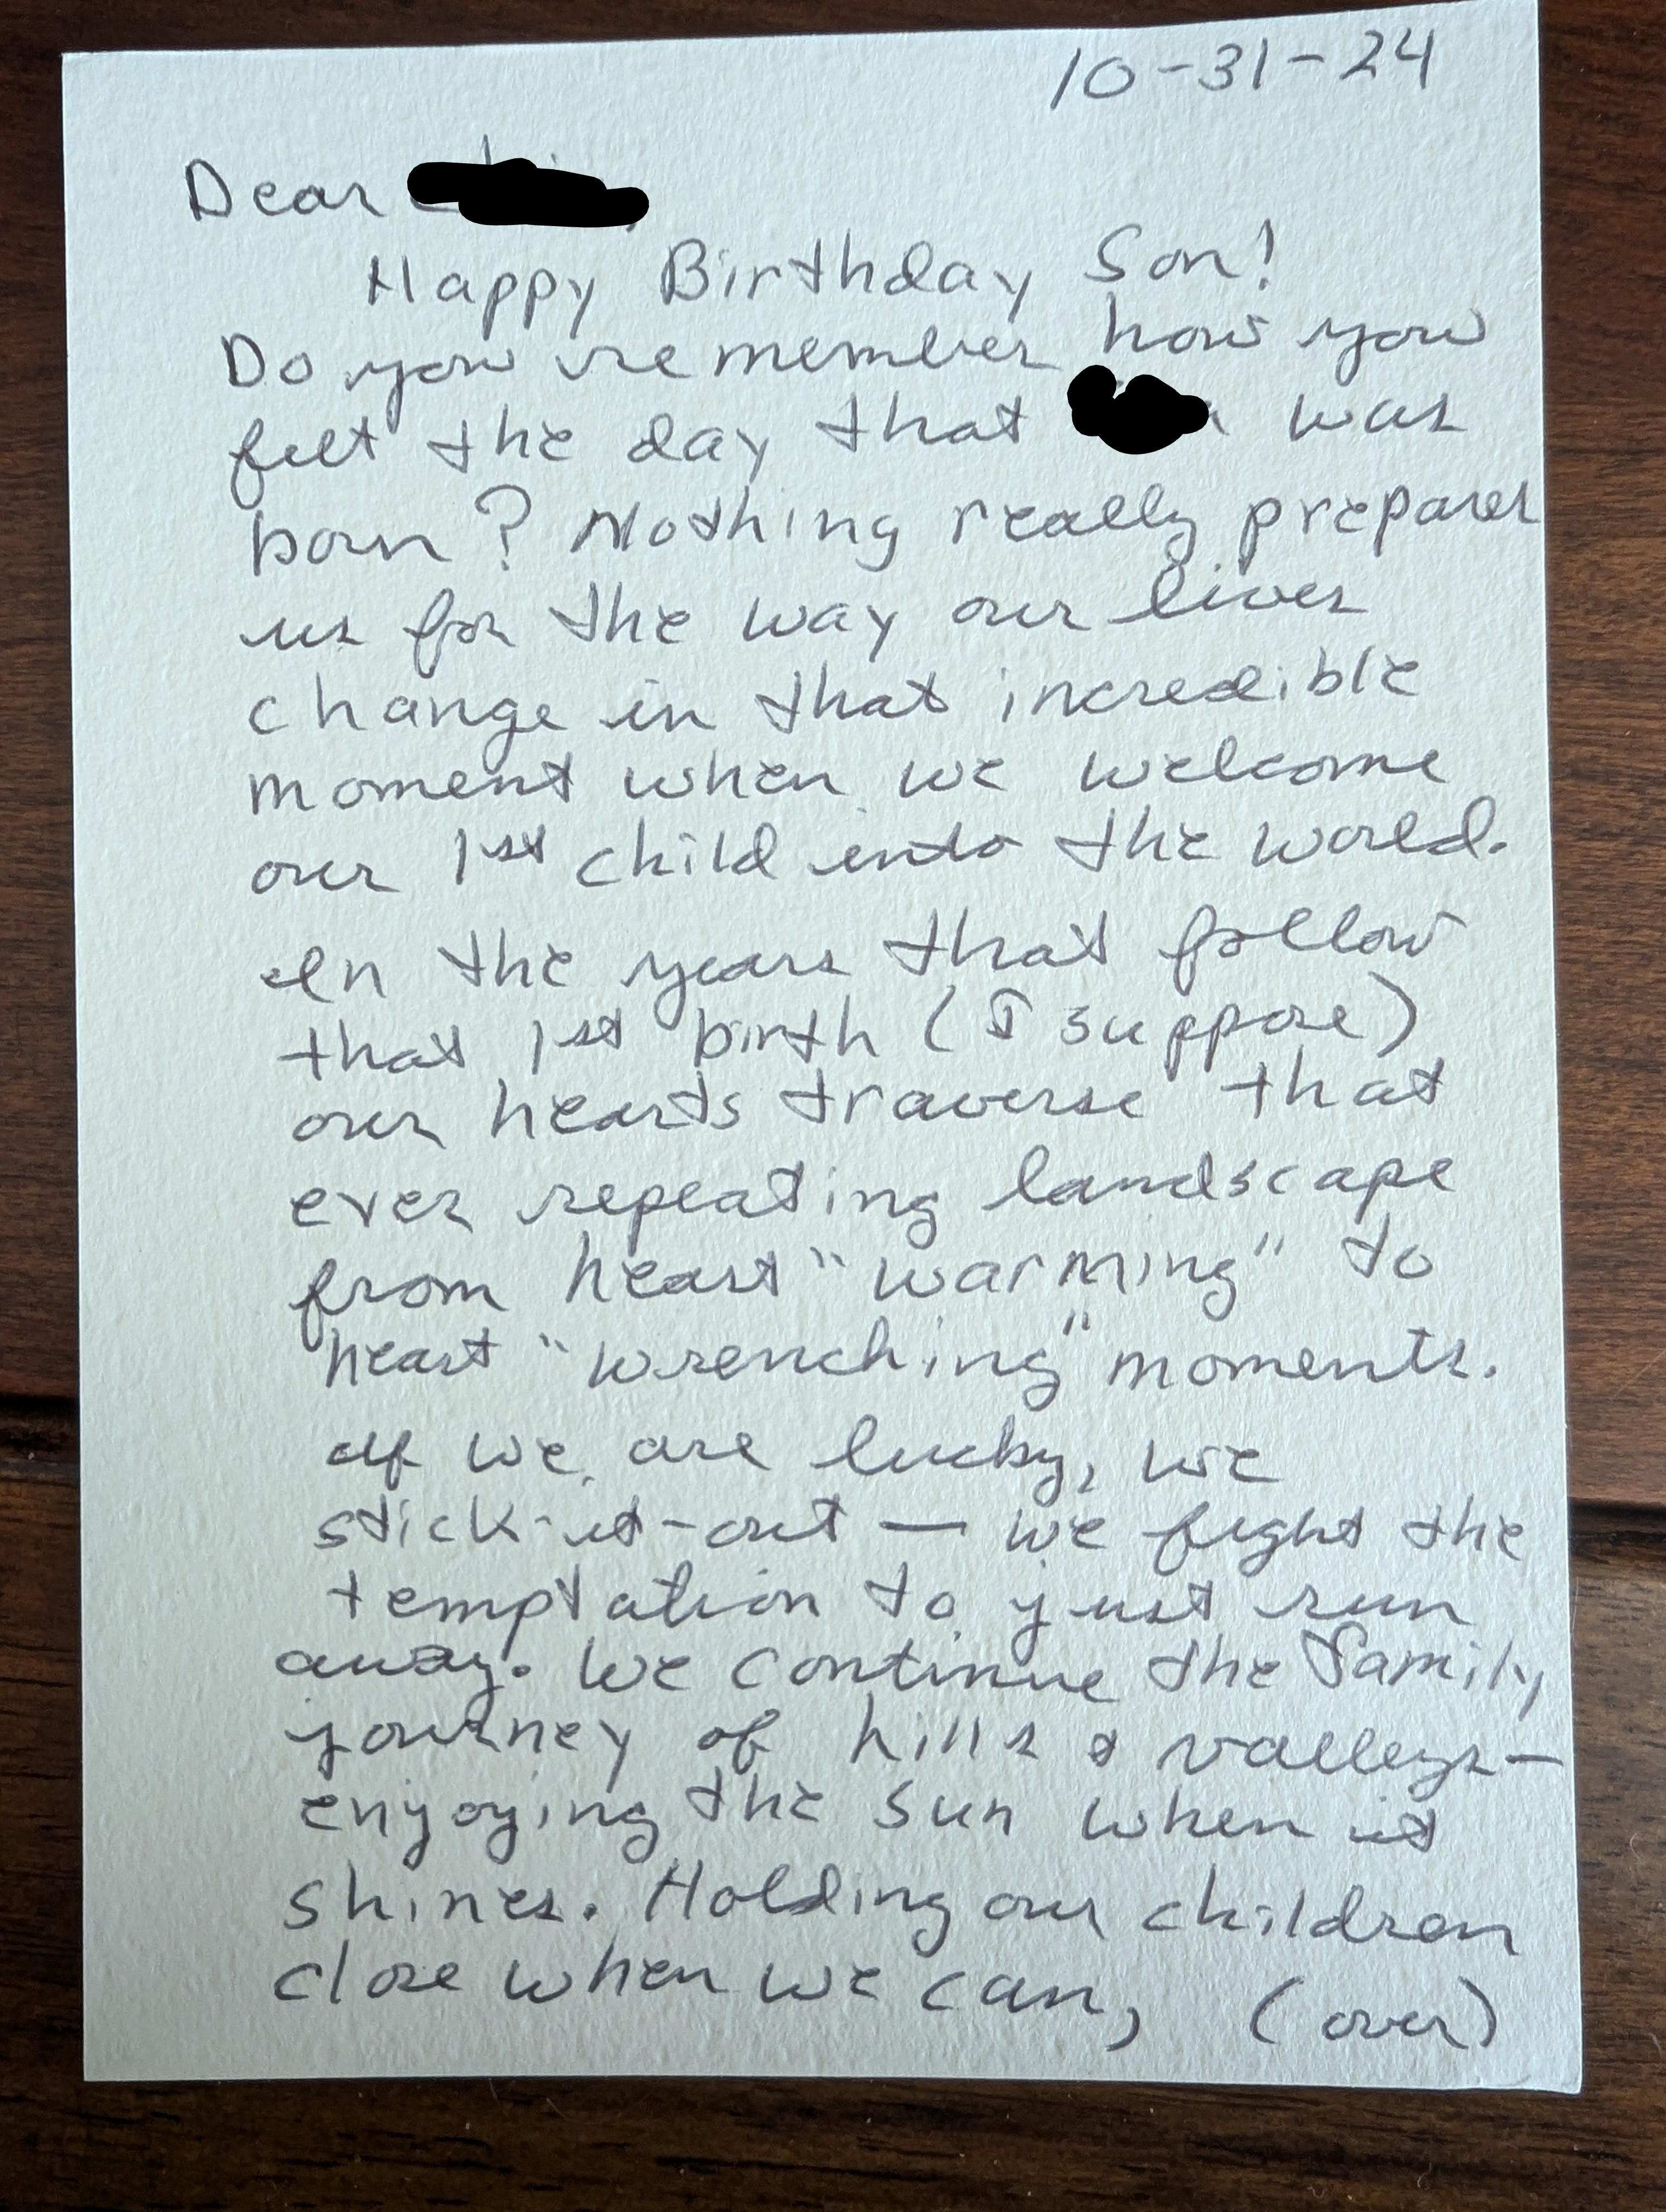 10-31-24
Dear
Happy Birthday Son!
Do you remember how you
felt the day that was
born? Nothing really prepares
us for the way our lives
change in that incredible
moment when we welcome
our 1st child into the world.
In the years that follow
that 1st birth (I suppose)
our hearts traverse that
ever repeating landscape
from heart "warming" to
heart "wrenching" moments.
If we are lucky, we
stick-it-out — we fight the
temptation to just run
away. We continue the family
journey of hills & valleys—
enjoying the sun when it
shines. Holding our children
close when we can, (over)